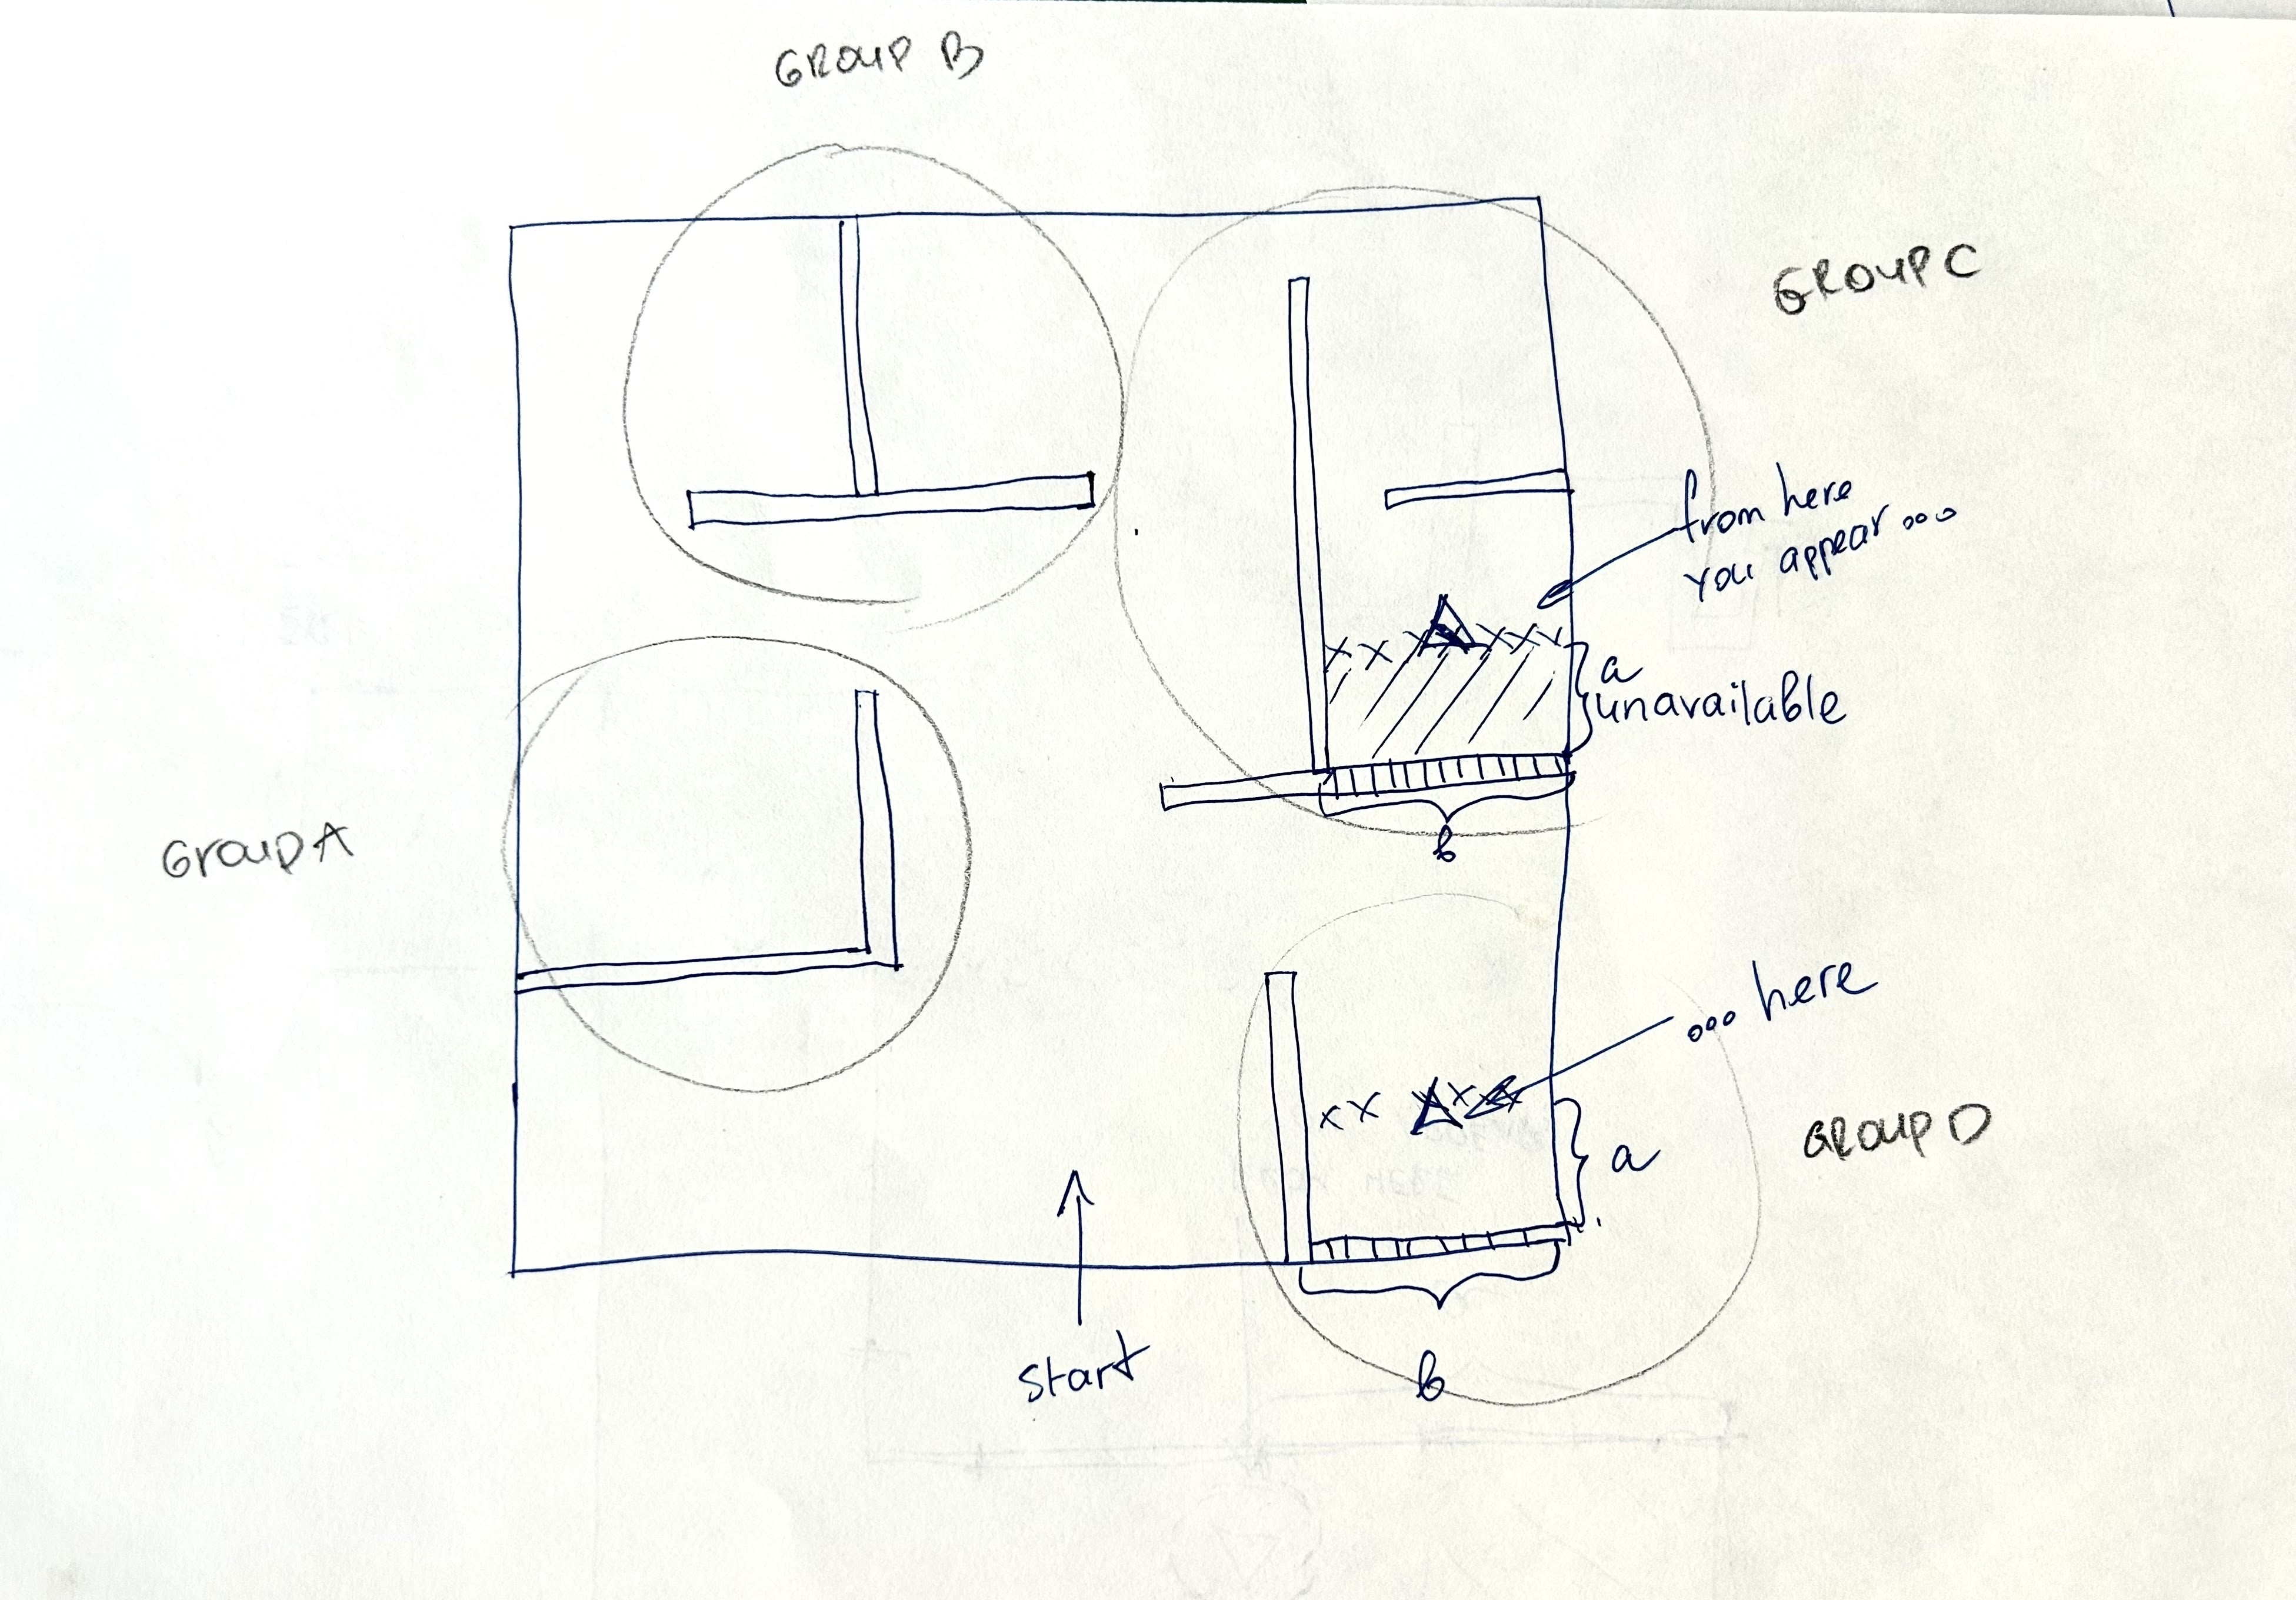 GROUP B
GROUP C
from here
you appear...
a
unavailable
b
GROUP A
... here
GROUP D
a
start
b